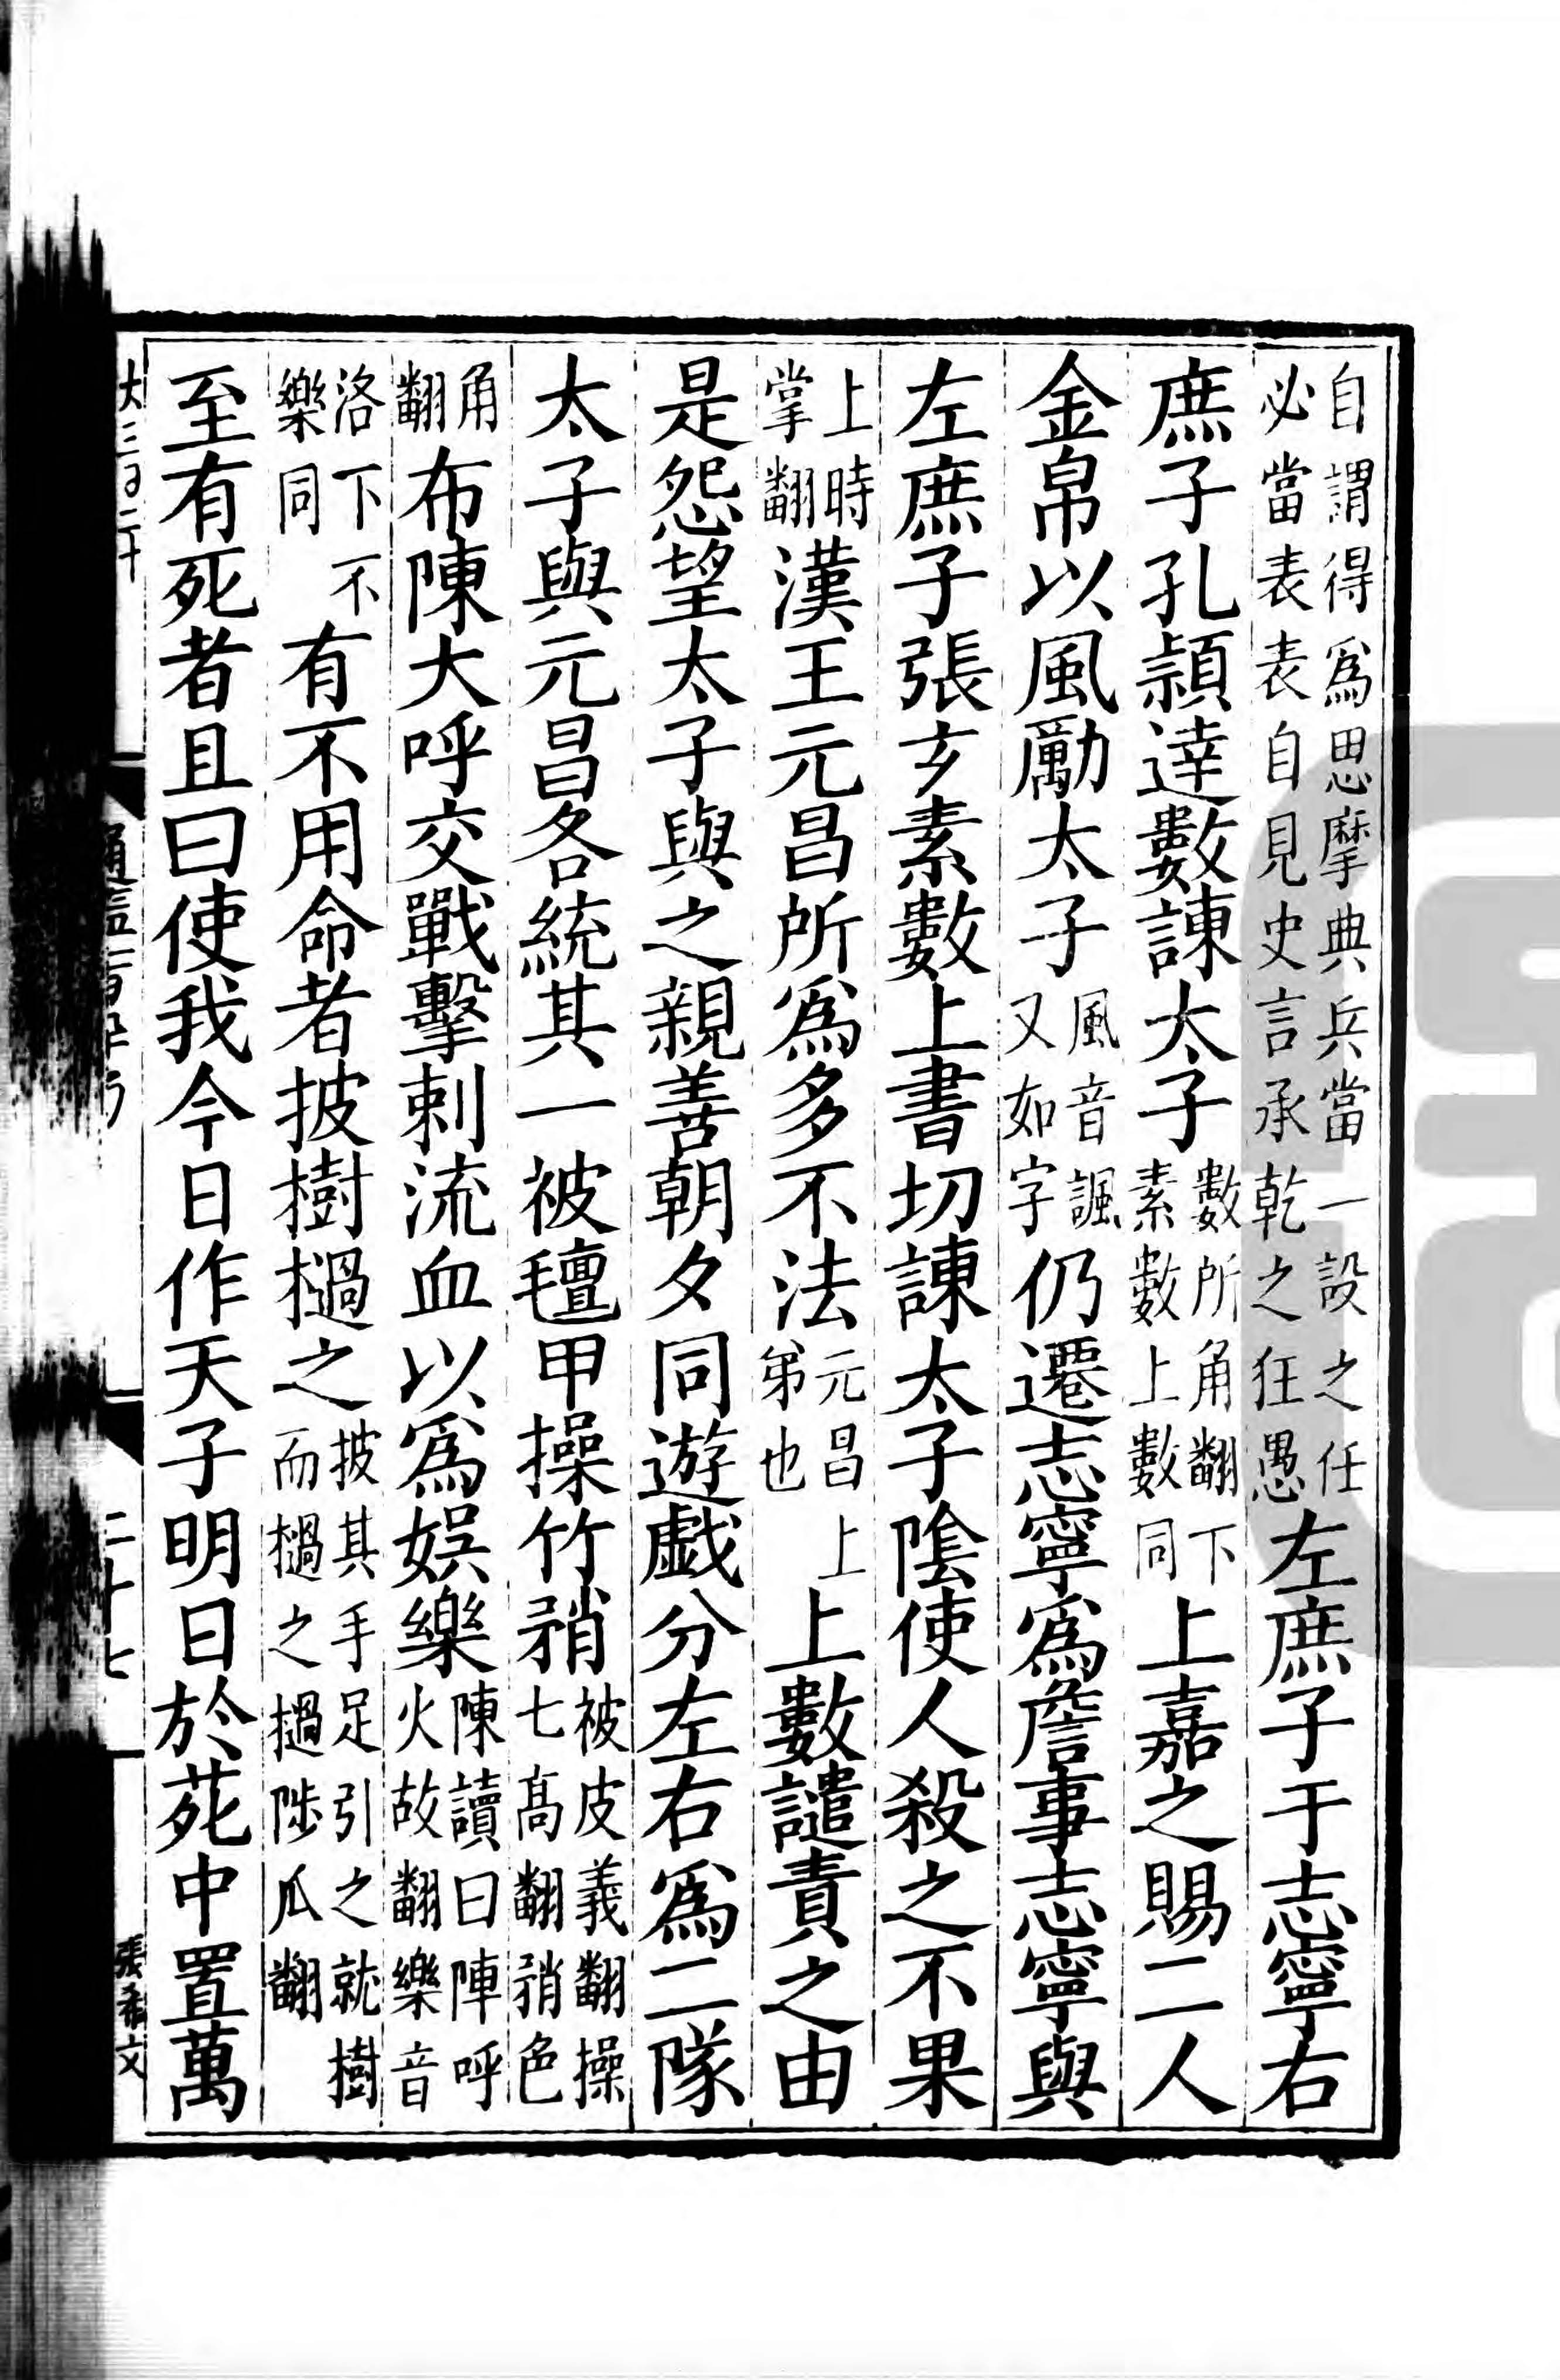 自謂得爲思摩典兵當一設之任必當表表自見史言承乾之狂愚左庶子于志寧右
庶子孔頴達數諫太子數所角翻下素數上數同上嘉之賜二人
金帛以風勵太子風音諷又如字仍遷志寧爲詹事志寧與
左庶子張玄素數上書切諫太子隂使人殺之不果
上時掌翻漢王元昌所爲多不法元昌上弟也上數譴責之由
是怨望太子與之親善朝夕同遊戯分左右爲二隊
太子與元昌各統其一被氊甲操竹矟被皮義翻操七髙翻矟色
角翻布陳大呼交戰擊刺流血以爲娯樂陳讀曰陣呼火故翻樂音
洛下不樂同有不用命者披樹檛之披其手足引之就樹而檛之檛陟瓜翻
至有死者且曰使我今日作天子明日於苑中置萬
二十七